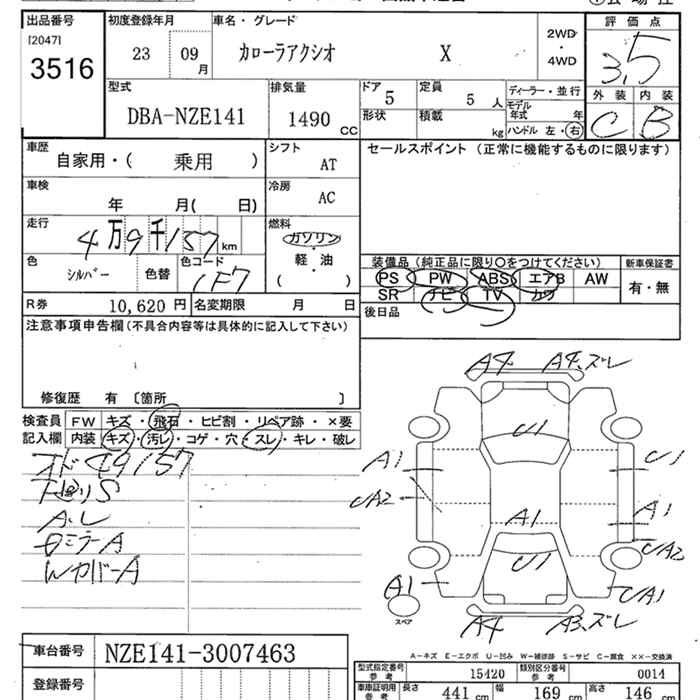 出品番号 初度登録年月 車名・グレード 評価点
[2047] 3516 23 09月 カローラアクシオ X 2WD・4WD 3.5
外装 内装
C B
型式 排気量 ドア 定員 ディーラー・並行
DBA-NZE141 1490cc 5 5人 モデル年式 年
形状 積載 kg ハンドル 左・右
車歴 シフト セールスポイント (正常に機能するものに限ります)
自家用・( 乗用 ) AT
車検 冷房
年 月( 日) AC
走行 燃料
4万9千157km ガソリン・軽・油 ( )
色 色替 色コード
シルバー 1F7
装備品 (純正品に限り○をつけてください) 新車保証書
PS PW ABS エアB AW 有・無
SR ナビ TV カワ
R券 10,620円 名変期限 月 日 後日品
注意事項申告欄 (不具合内容等は具体的に記入して下さい)
修復歴 有 〔箇所 〕
検査員 FW キズ・飛石・ヒビ割・リペア跡・×要
記入欄 内装 キズ・汚レ・コゲ・穴・スレ・キレ・破レ
49157
A4 A4.ズレ
U1
A1 U1
UA2
A1 A1
UA2
U1
A1 UA1
スペア
A4 A3.ズレ
A-キズ E-エクボ U-凹み W-補修跡 S-サビ C-腐食 ××-交換済
車台番号 NZE141-3007463
登録番号
型式指定番号 参考 15420 類別区分番号 参考 0014
車庫証明用 参考 長さ 441cm 幅 169cm 高さ 146cm